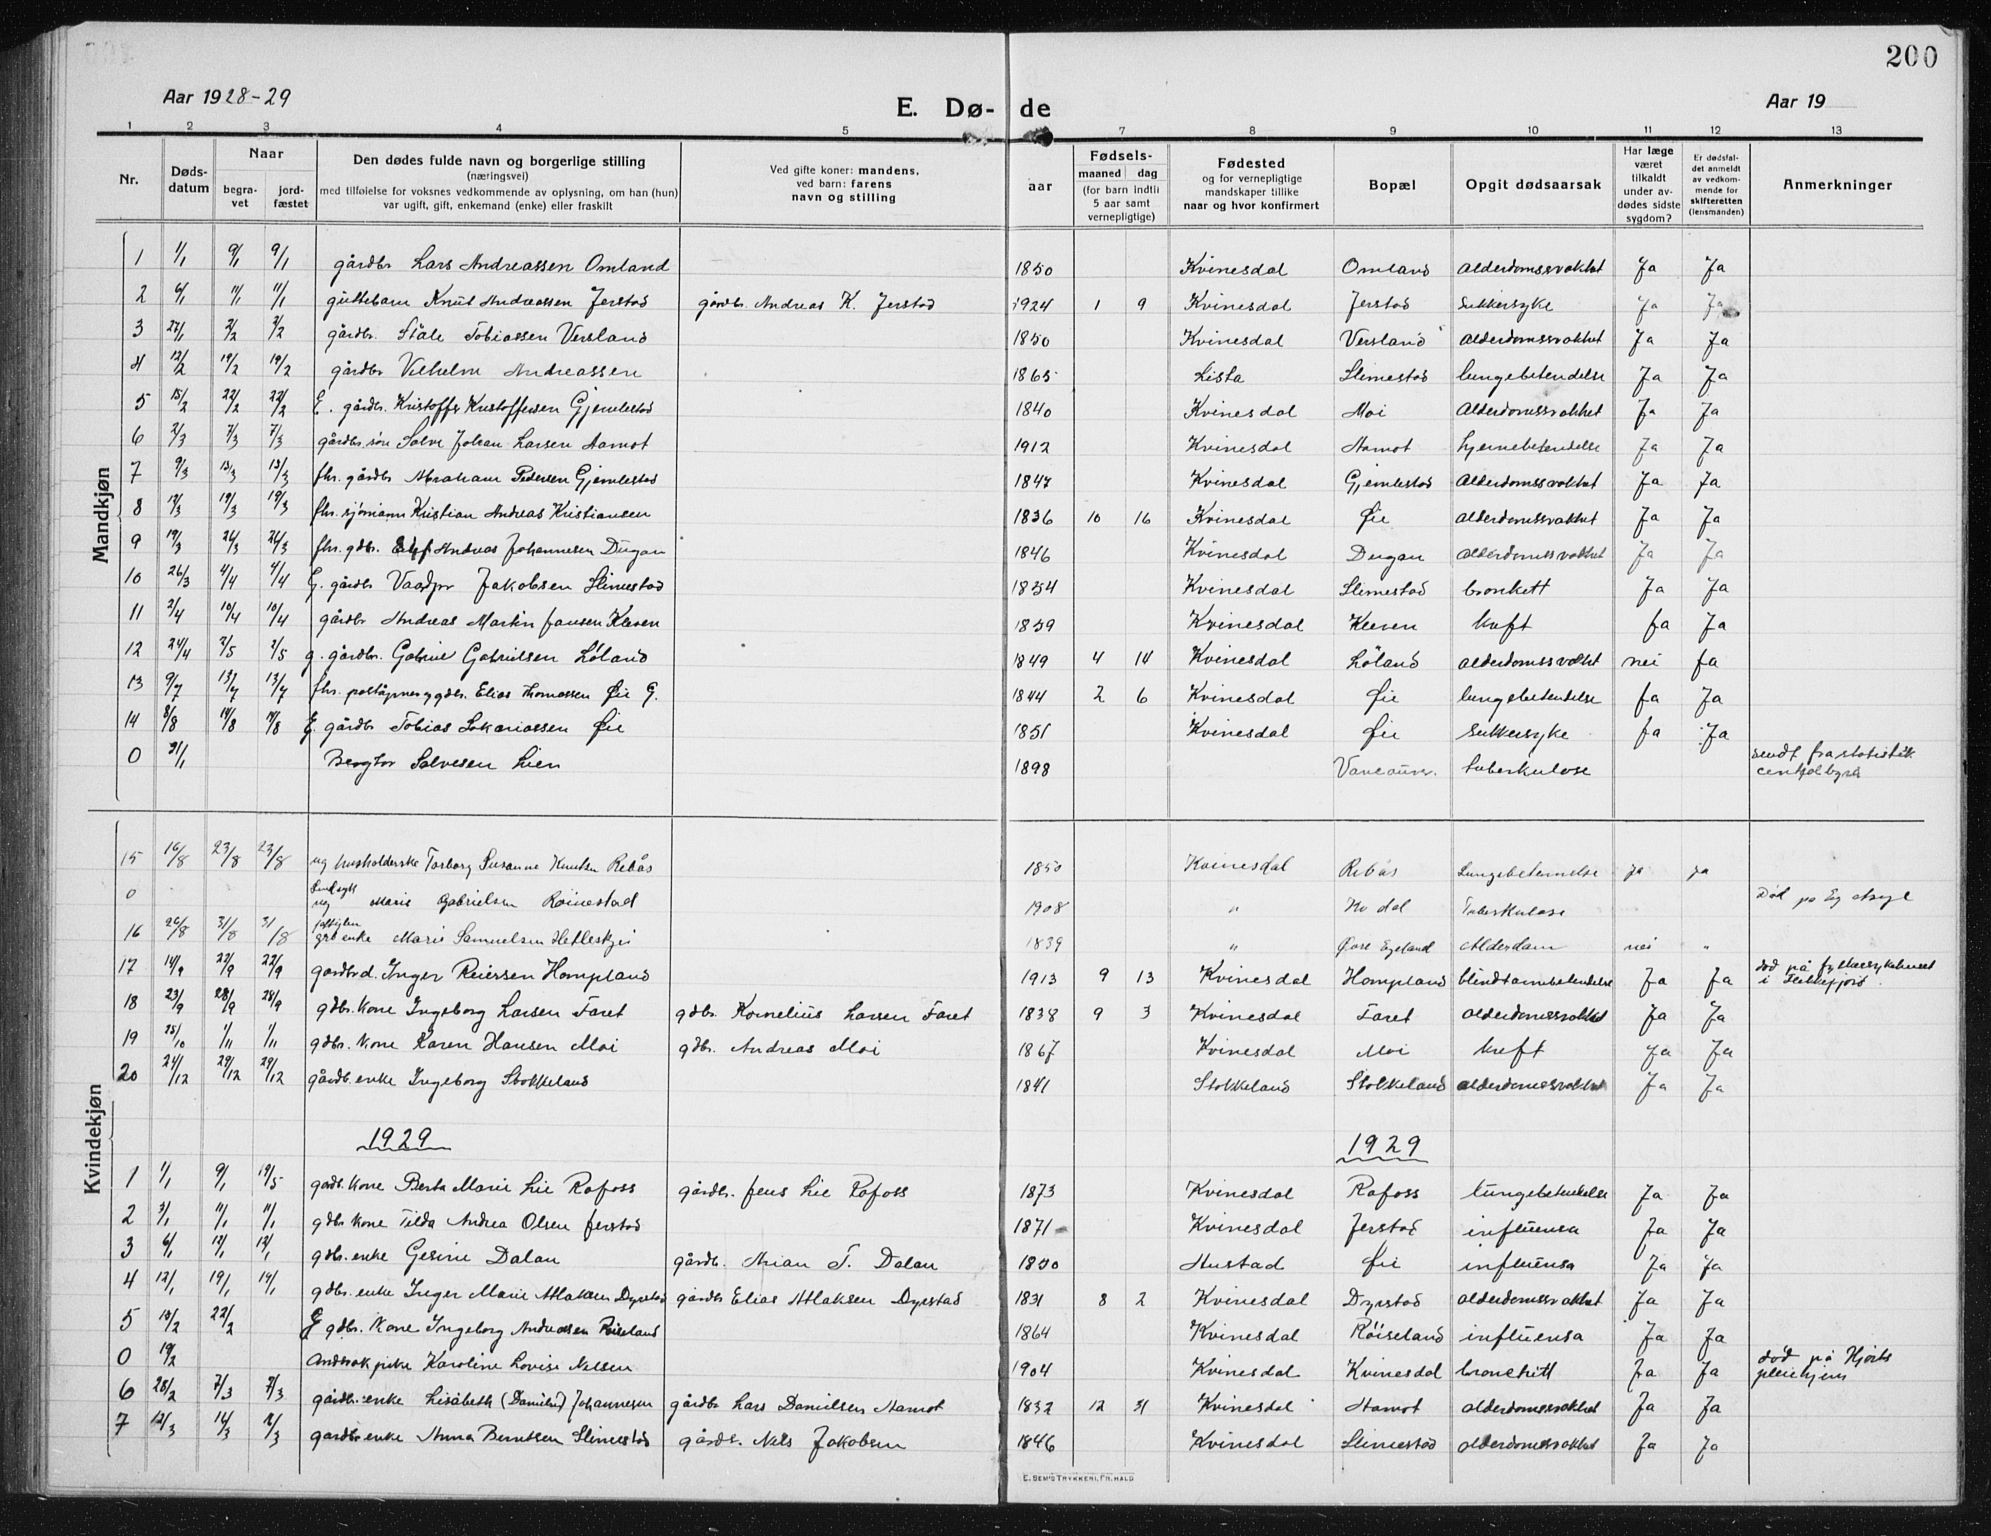 200
Aar 1928-29 E. Dø- de Aar 19
1 2 3 4 5 7 8 9 10 11 12 13
Nr. Døds-datum Naar begra-vet jord-fæstet Den dødes fulde navn og borgerlige stilling (næringsvei) med tilføielse for voksnes vedkommende av oplysning, om han (hun) var ugift, gift, enkemand (enke) eller fraskilt Ved gifte koner: mandens, ved barn: farens navn og stilling aar Fødsels- maaned dag (for barn indtil 5 aar samt vernepligtige) Fødested og for vernepligtige mandskaper tillike naar og hvor konfirmert Bopæl Opgit dødsaarsak Har læge været tilkaldt under av-dødes sidste sygdom? Er dødsfal-det anmeldt av vedkom-mende for skifteretten (lensmanden) Anmerkninger
Mandkjøn
1 1/1 9/1 9/1 gårdbr Lars Andreassen Omland 1850 Kvinesdal Omland alderdomssvakhet Ja Ja
2 6/1 11/1 11/1 guttebarn Knut Andreassen Jerstad gårdbr. Andreas K. Jerstad 1924 1 9 Kvinesdal Jerstad sukkersyke Ja Ja
3 27/1 2/2 2/2 gårdbr. Ståle Tobiassen Versland 1850 Kvinesdal Versland alderdomssvakhet Ja Ja
4 12/2 19/2 19/2 gårdbr Vilhelm Andreassen 1865 Lista Slimestad lungebetendelse Ja Ja
5 15/2 22/2 22/2 E. gårdbr. Kristoffer Kristoffersen Gjemlestad 1840 Kvinesdal Moi Alderdomssvakhet Ja Ja
6 2/3 7/3 7/3 gårdbr. søn Salve Johan Larsen Aamot 1912 Kvinesdal Aamot hjernebetendelse Ja Ja
7 9/3 13/3 13/3 fhv. gårdbr Abraham Pedersen Gjemlestad 1847 Kvinesdal Gjemlestad alderdomssvakhet Ja Ja
8 19/3 19/3 fhv. sjømann Kristian Andreas Kristiansen 1836 10 16 Kvinesdal Øie alderdomssvakhet Ja Ja
9 19/3 26/3 26/3 fhv. gdbr. Andreas Johannesen Dugan 1846 Kvinesdal Dugan alderdomssvakhet Ja Ja
10 26/3 4/4 4/4 E. gårdbr Jakobsen Slimestad 1854 Kvinesdal Slimestad bronkitt Ja Ja
11 2/4 10/4 10/4 gårdbr Andreas Martin Jansen Kleven 1859 Kvinesdal Kleven kreft Ja Ja
12 24/4 2/5 2/5 g. gårdbr. Gabriel Gabrielsen Løland 1849 4 14 Kvinesdal Løland alderdomssvakhet nei Ja
13 9/7 13/7 13/7 fhv. poståpner og gdbr. Elias Thomassen Øie G. 1844 2 6 Kvinesdal Øie lungebetendelse Ja Ja
14 8/8 14/8 14/8 E. gårdbr Tobias Sakariassen Øie 1851 Kvinesdal Øie sukkersyke Ja Ja
0 31/1 Bergtor Salvesen Lien 1898 tuberkulose sendt fra statistik centralbyrå
Kvindekjøn
15 16/8 23/8 23/8 ug husholderske Torborg Susanne Knutsen Rebås 1850 Kvinesdal Rebås Lungebetennelse ja ja
0 ug Marie Gabrielsen Röinestad 1908 " Tuberkulose Død på Eg Asyl
16 26/8 31/8 31/8 enke Marie Samuelsen Hetleskjei 1839 " Øvre Egeland Alderdom nei "
17 14/9 22/9 22/9 gårdbrd. Inger Reiersen Hompland 1913 9 13 Kvinesdal Hompland blindtarmbetendelse Ja Ja død på fylkessykehuset i Flekkefjord.
18 23/9 28/9 28/9 gdbr. kone Ingeborg Larsen Faret gdbr. Kornelius Larsen Faret 1838 9 3 Kvinesdal Faret alderdomssvakhet Ja Ja
19 25/10 1/11 1/11 gdbr. kone Karen Hansen Moi gdbr. Andreas Moi 1867 Kvinesdal Moi kreft Ja Ja
20 24/12 29/12 29/12 gårdb. enke Ingeborg Stokkeland 1841 Stokkeland Stokkeland alderdomssvakhet Ja Ja
1929 1929
1 1/1 9/1 19/5 gadb. kone Berta Marie Lie Rafoss gårdbr. Jens Lie Rafoss 1873 Kvinesdal Rafoss lungebetendelse Ja Ja
2 3/1 11/1 11/1 gdbr kone Tilda Andrea Olsen Jerstad 1871 Kvinesdal Jerstad influensa Ja Ja
3 6/1 12/1 12/1 gdbr. enke Gesine Dalan gårdbr. Arian T. Dalan 1850 Austad Øie influensa Ja Ja
4 12/1 19/1 19/1 gdbr. enke Inger Marie Atlaksen Dyrstad gårdbr Elias Atlaksen Dyrstad 1831 8 2 Kvinesdal Dyrstad alderdomssvakhet Ja Ja
5 22/2 E gdbr. kone Ingeborg Andreassen Røiseland 1864 Kvinesdal Røiseland influensa Ja Ja
0 19/2 pike Karoline Lovise Nilsen 1904 Kvinesdal Kvinesdal bronchitt Ja Ja død på Hjorts pleiehjem
6 28/2 7/3 7/3 gårdbr. enke Lisabeth (Danielsd) Johannesen gårdbr Lars Danielsen Aamot 1832 12 31 Kvinesdal Aamot alderdomssvakhet Ja Ja
7 12/3 gårdbr enke Anna Berntsen Slimestad gårdb. Nils Jakobsen 1846 Kvinesdal Slimestad alderdomssvakhet Ja Ja
E. SEM'S TRYKKERI, FR.HALD